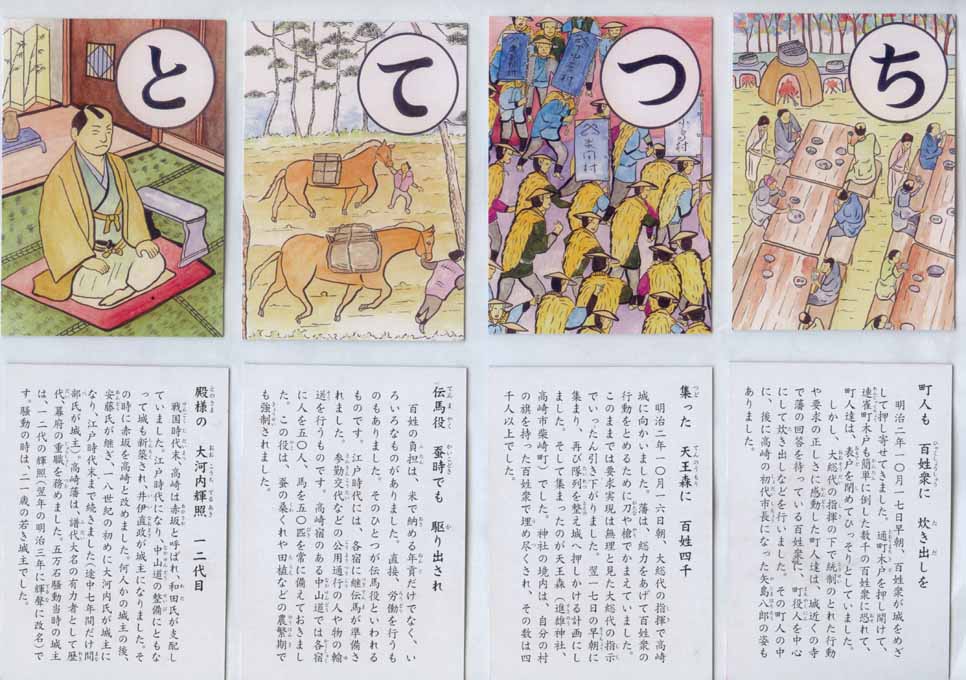 ち
つ
て
と
小島村
町人も 百姓衆に 炊き出しを
明治二年一〇月一七日早朝、百姓衆が城をめざ
して押し寄せてきました。通町木戸を押し開けて、
連雀町木戸も簡単に倒した数千の百姓衆に恐れて、
町人達は、表戸を閉めてひっそりとしていました。
しかし、大総代の指揮の下で統制のとれた行動
や要求の正しさに感動した町人達は、城近くの寺
で藩の回答を待っている百姓衆に、町役人を中心
にして炊き出しなどを行いました。その町人の中
に、後に高崎の初代市長になった矢島八郎の姿も
ありました。
集った 天王森に 百姓四千
明治二年一〇月一六日夕刻、大総代の指揮で高崎
城に向かいました。藩は、総力をあげて百姓衆の
行動をとめるために刀や槍でかまえていました。
このままでは要求実現は無理と見た大総代の指示
でいったん引き下がりました。翌一七日の早朝に
集まり、再び隊列を整え城へ押しかける計画にし
ました。そして集まったのが天王森（進雄神社、
高崎市柴崎町）でした。神社の境内は、自分の村
の旗を持った百姓衆で埋め尽くされ、その数は四
千人以上でした。
伝馬役 蚕時でも 駆り出され
百姓の負担は、米で納める年貢だけでなく、い
ろいろなものがありました。直接、労働を行うも
のもありました。そのひとつが伝馬役といわれる
ものです。江戸時代には、各宿に継伝馬が準備さ
れました。参勤交代などの公用通行の人や物の輸
送を行うものです。高崎宿のある中山道では各宿
に人を五〇人、馬を五〇匹を常に備えておきまし
た。この役は、蚕の桑くれや田植などの農繁期で
も強制されました。
殿様の 大河内輝照、一二代目
戦国時代末、高崎は赤坂と呼ばれ、和田氏が支配し
ていました。江戸時代になり、中山道の整備にともな
って城も新築され、井伊直政が城主になりました。そ
の時に赤坂を高崎と改めました。何人かの城主の後、
安藤氏が継ぎ、一八世紀の初めに大河内氏が城主に
なり、江戸時代末まで続きました（途中七年間だけ間
部氏が城主）。高崎藩は、譜代大名の有力者として歴
代、幕府の重職を務めました。五万石騒動当時の城主
は、一二代の輝照（翌年の明治三年に輝聲に改名）で
す。騒動の時は、二一歳の若き城主でした。